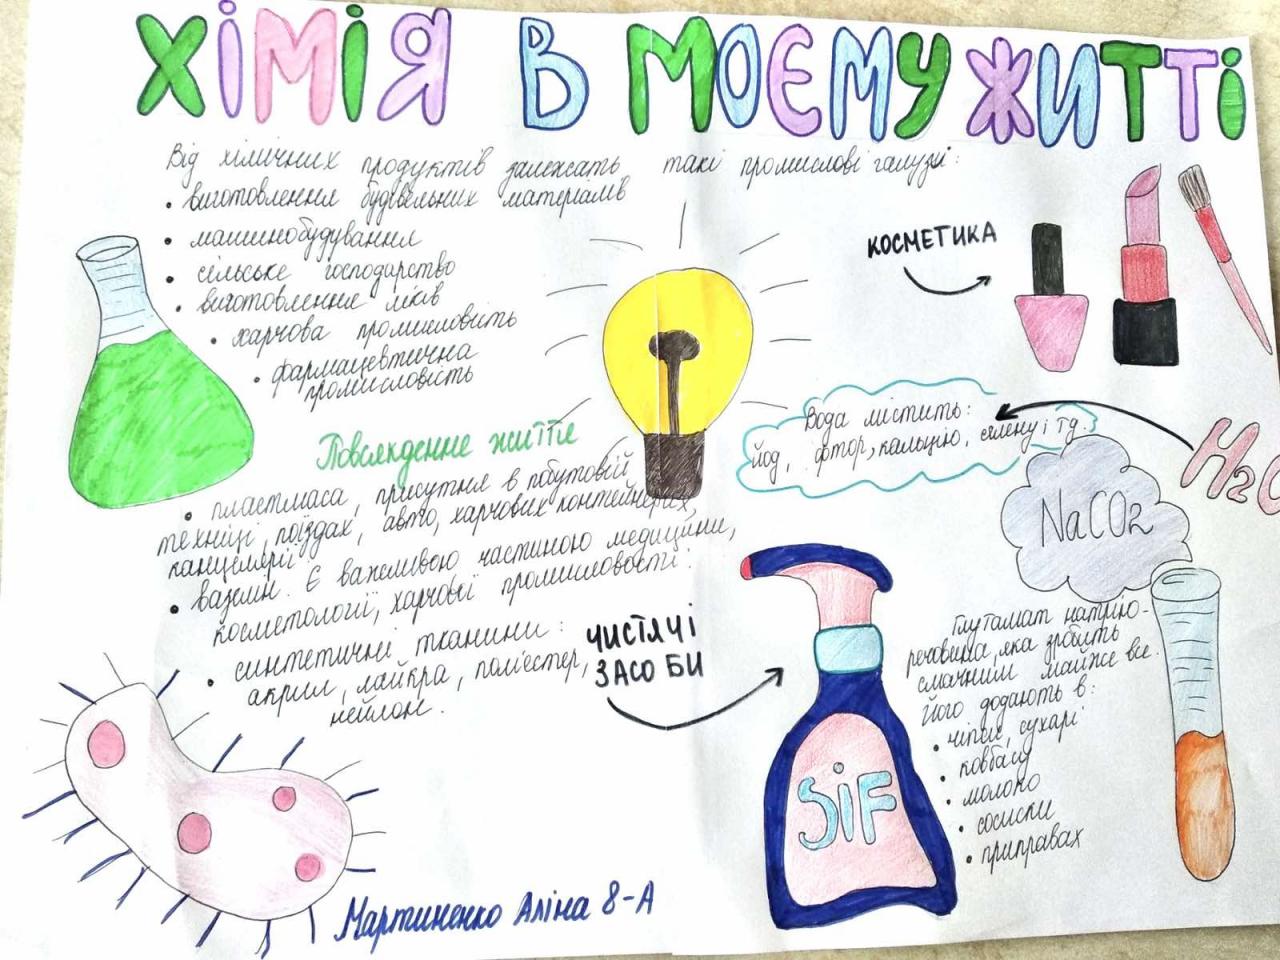 ХІМІЯ В МОЄМУ ЖИТТІ
Від хімічних продуктів залежать такі промислові галузі:
• виготовлення будівельних матеріалів
• машинобудування
• сільське господарство
• виготовлення ліків
• харчова промисловість
• фармацевтична
промисловість
Повсякденне життя
• пластмаса, присутня в побутовій
техніці, поїздах, авто, харчових контейнерах,
канцелярії.
• вазелін. Є важливою частиною медицини,
косметології, харчової промисловості.
• синтетичні тканини:
акрил, лайкра, поліестер,
нейлон.
КОСМЕТИКА
Вода містить:
йод, фтор, кальцію, селену і тд.
H2O
NaCO2
ЧИСТЯЧІ
ЗАСОБИ
SiF
Глутамат натрію-
речовина, яка зробить
смачним майже все.
Його додають в:
• чіпси, сухарі
• ковбасу
• молоко
• сосиски
• приправах
Мартиненко Аліна 8-А